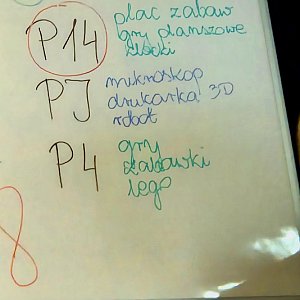 P14 plac zabaw
gry planszowe
klocki
PJ mikroskop
drukarka 3D
robot
P4 gry
zabawki
lego
8